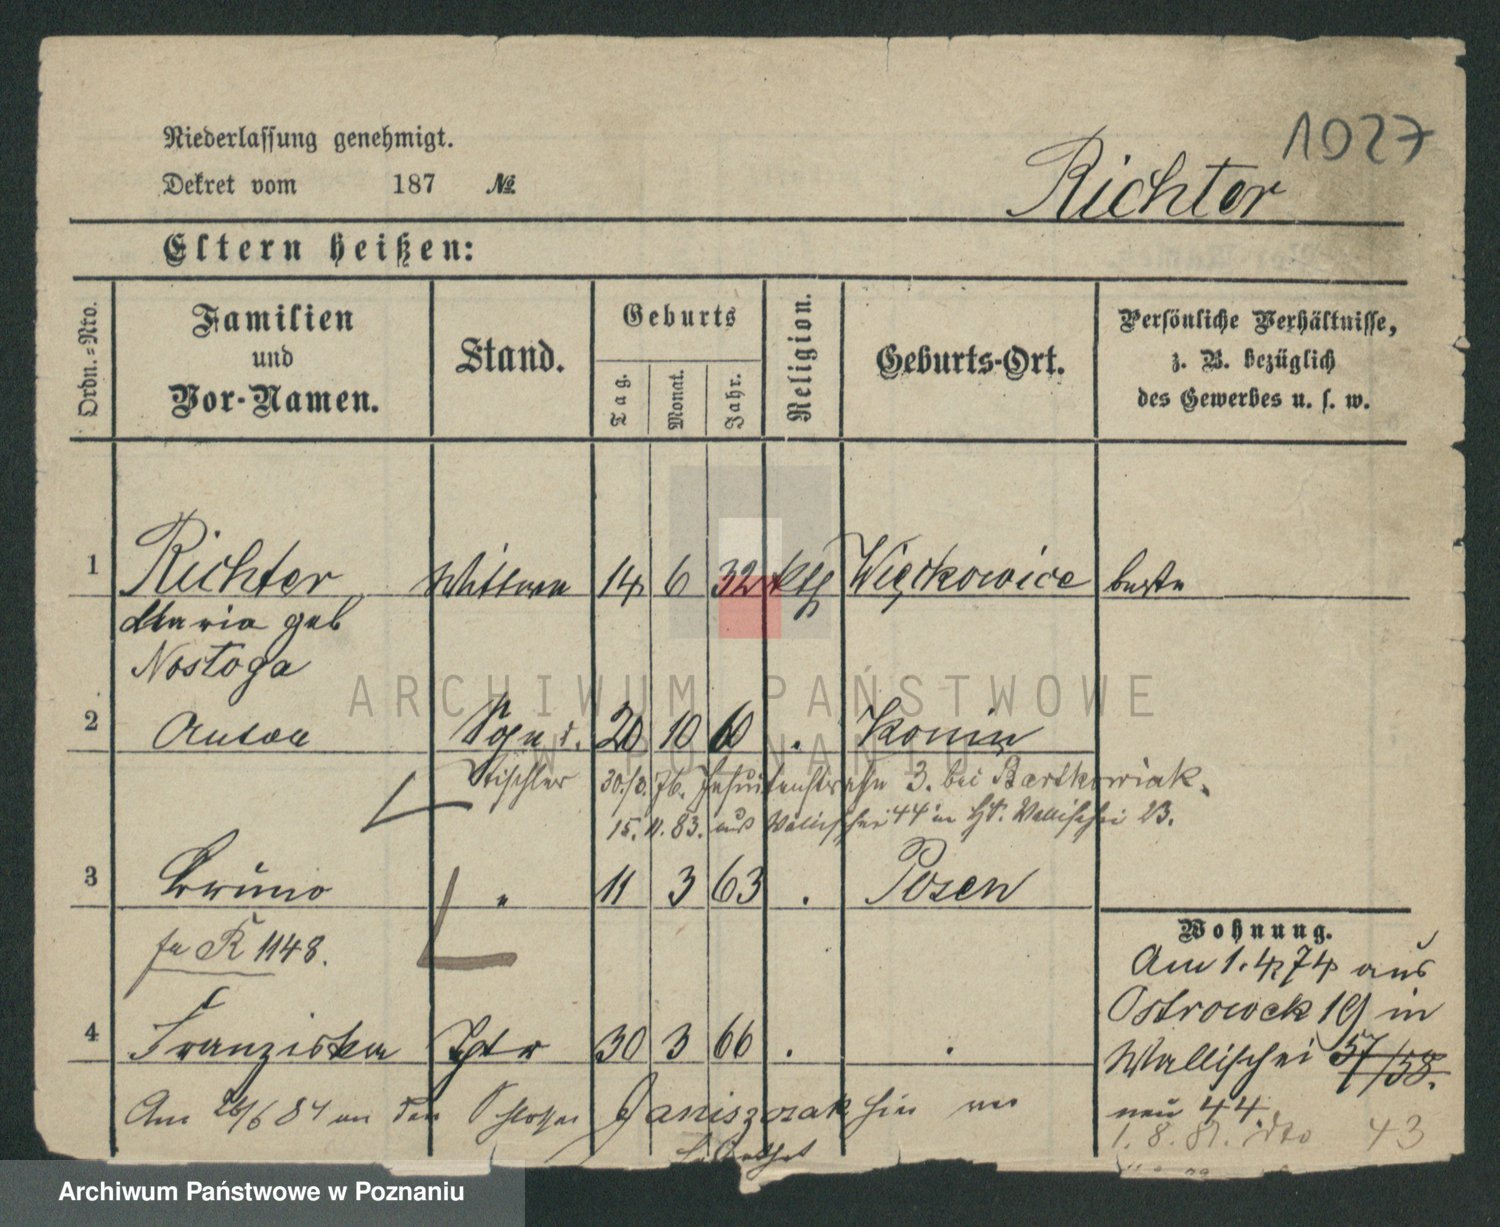 1027
Niederlassung genehmigt.
Dekret vom 187 №
Richter
Eltern heißen:
Ordn.-Nro.
Familien und Vor-Namen.
Stand.
Geburts
Tag.
Monat.
Jahr.
Religion.
Geburts-Ort.
Persönliche Verhältnisse, z. B. bezüglich des Gewerbes u. s. w.
1 Richter Wittwe 14 6 32 kth Więckowice
Maria geb
Nostoga
2 Anton 20 10 60 Konin
Tischler 30./8. 76. Jesuitenstraße 3. bei Bartkowiak.
15. 11. 83. aus Wallischei 44 in Wallischei 23.
3 Bruno " 11 3 63 . Posen
fu R 1148.
4 Franziska Tchtr 30 3 66 . .
Am 26/6 84 an den Schlosser Janiszczak
Wohnung.
Am 1. 4 74 aus
Ostrowek 19 in
Wallischei 57/58.
neu 44.
1. 8. 81. dto 43
ARCHIWUM PAŃSTWOWE
W POZNANIU
Archiwum Państwowe w Poznaniu